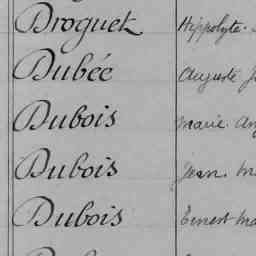 Droguet Hippolyte
Dubée Auguste
Dubois Marie
Dubois Jean
Dubois Ernest